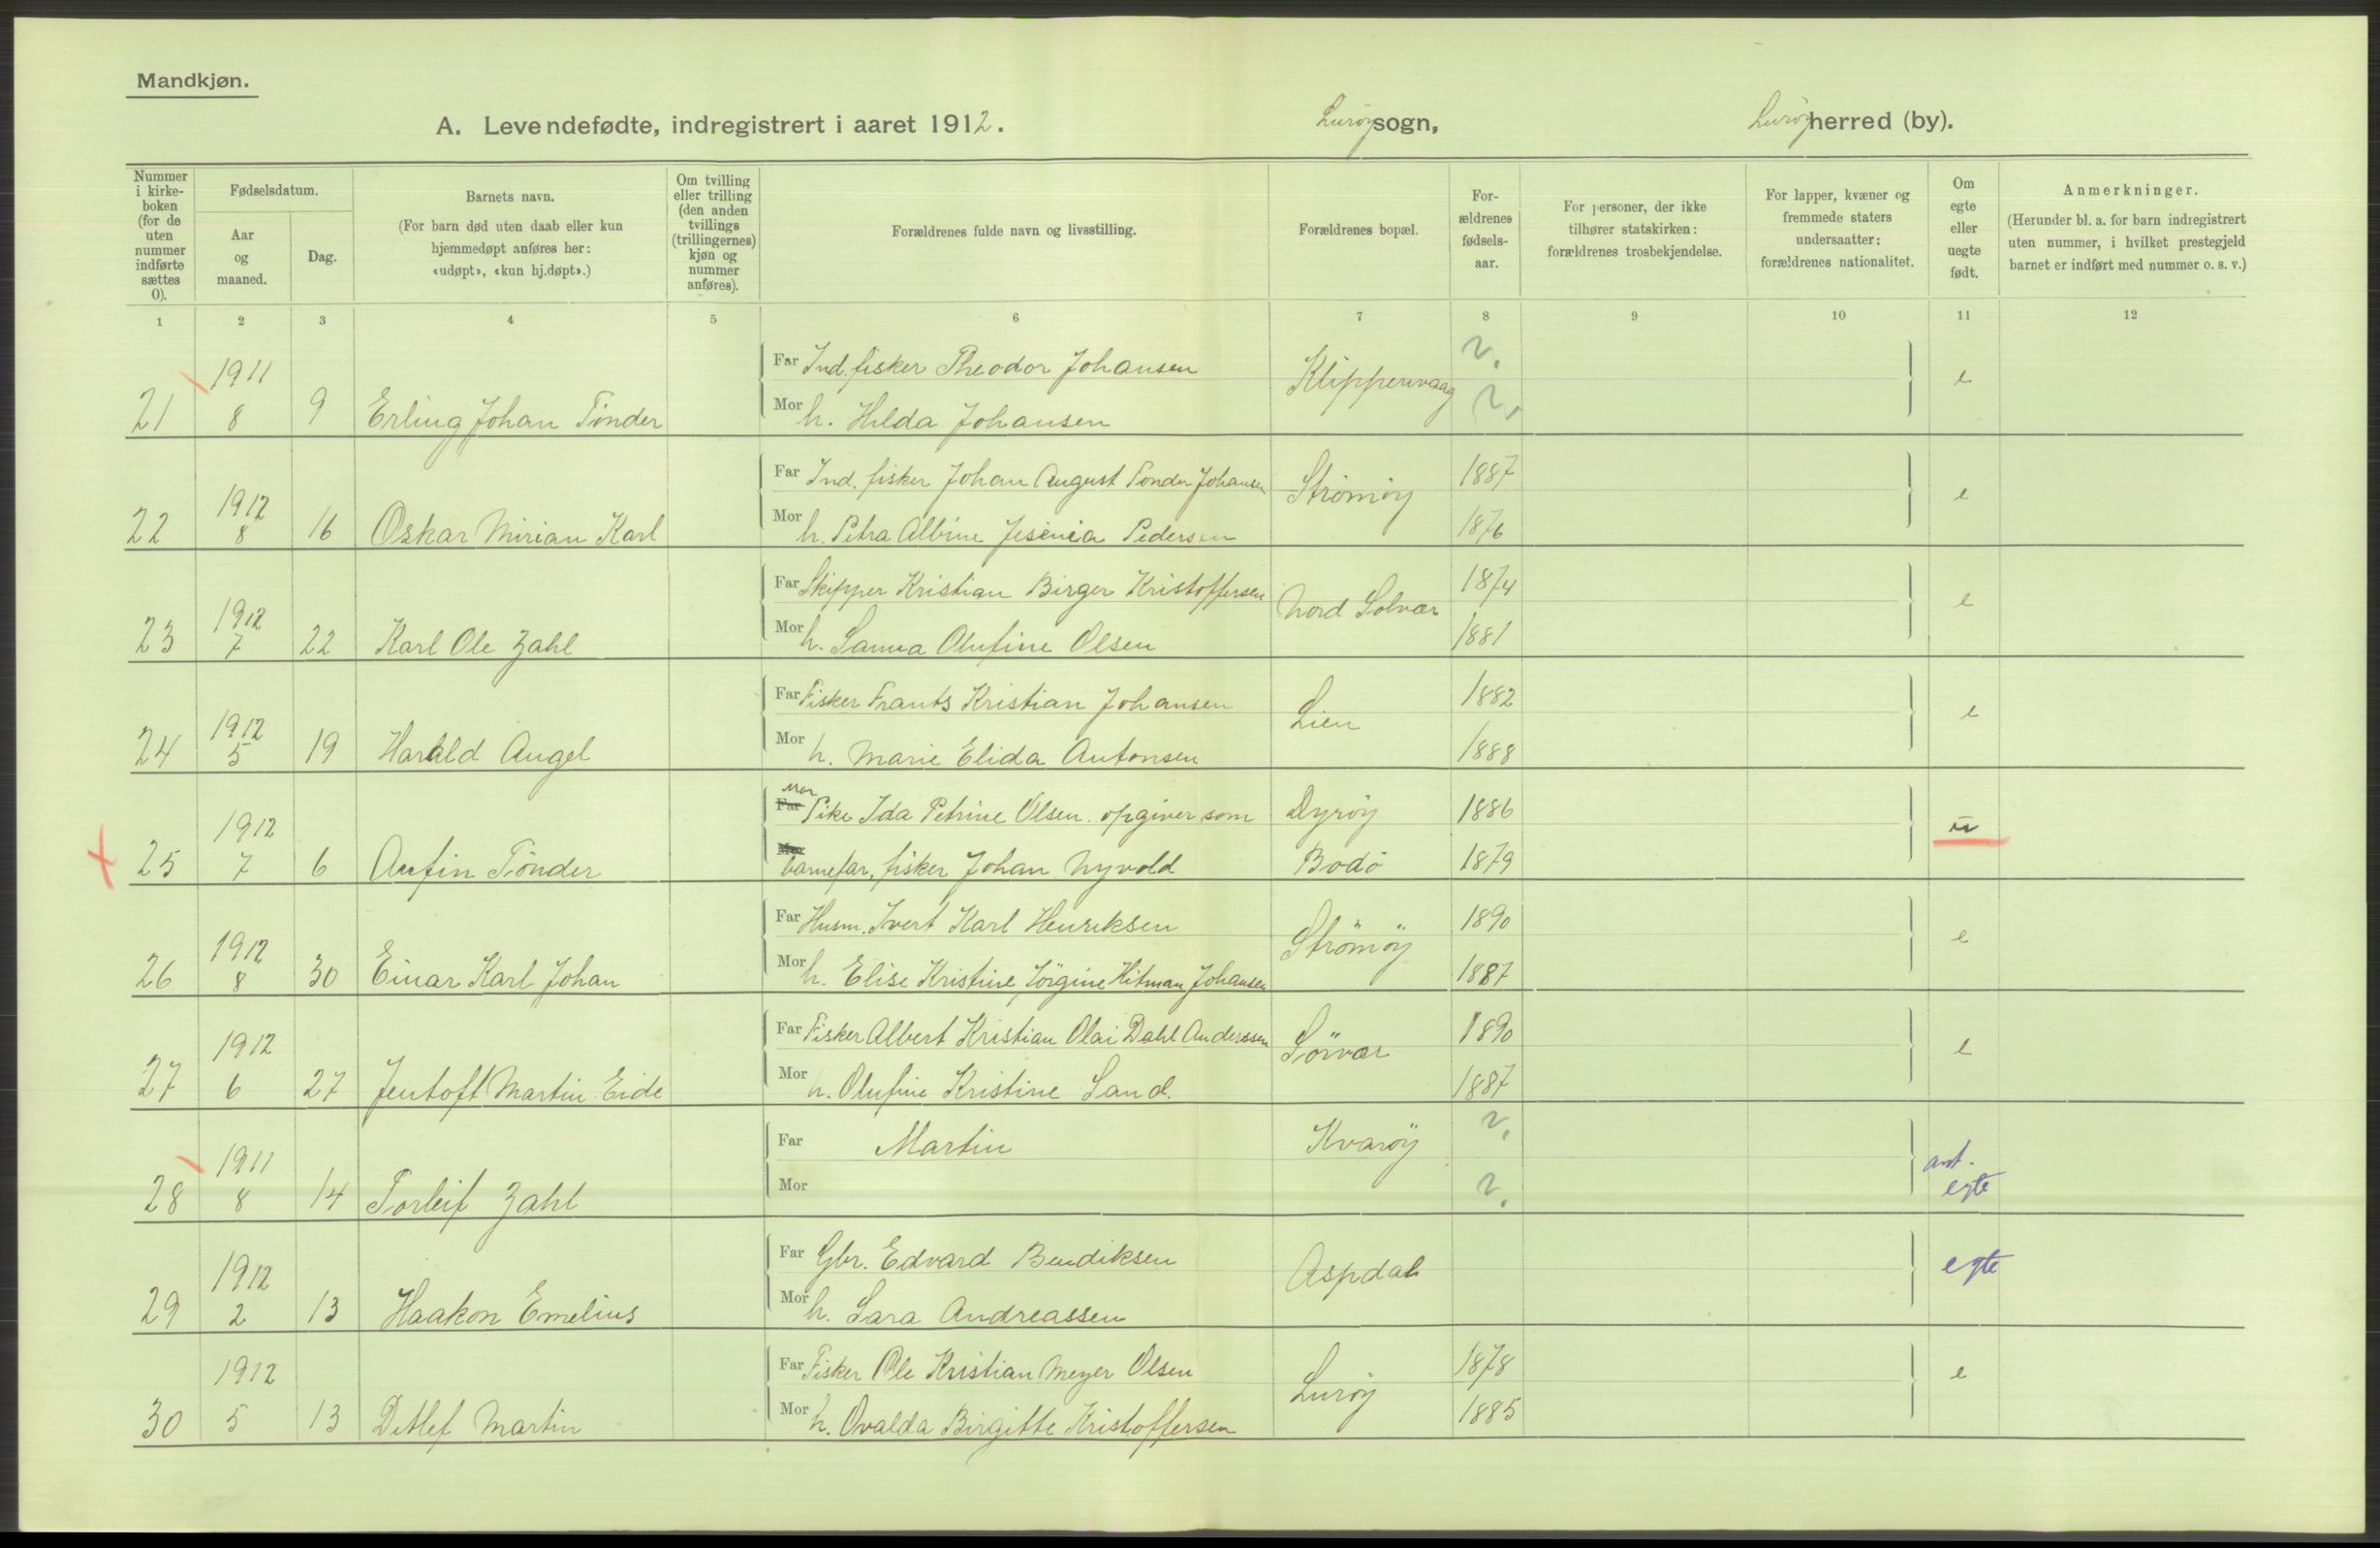 Mandkjøn.
A. Levendefødte, indregistrert i aaret 1912. Lurøy sogn, Lurøy herred (by).
Nummer i kirke-boken (for de uten nummer indførte sættes 0).
Fødselsdatum.
Aar og maaned.
Dag.
Barnets navn.
(For barn død uten daab eller kun
hjemmedøpt anføres her:
«udøpt», «kun hj.døpt».)
Om tvilling eller trilling (den anden tvillings (trillingernes) kjøn og nummer anføres).
Forældrenes fulde navn og livsstilling.
Forældrenes bopæl.
For-ældrenes fødsels-aar.
For personer, der ikke
tilhører statskirken:
forældrenes trosbekjendelse.
For lapper, kvæner og
fremmede staters
undersaatter:
forældrenes nationalitet.
Om egte eller uegte født.
Anmerkninger.
(Herunder bl. a. for barn indregistrert
uten nummer, i hvilket prestegjeld
barnet er indført med nummer o. s. v.)
1 2 3 4 5 6 7 8 9 10 11 12
1911 Far Ind. fisker Theodor Johansen Klippenvaag ? e
21 8 9 Erling Johan Tönder Mor h. Hilda Johansen ?
1912 Far Ind. fisker Johan August Tonder Johansen Strömöy 1887 e
22 8 16 Oskar Mirian Karl Mor h. Petra Albine Jesenia Pedersen 1876
1912 Far Skipper Kristian Birger Kristoffersen Nord Solvær 1874 e
23 7 22 Karl Ole Zahl Mor h. Sanna Olufine Olsen 1881
1912 Far Fisker Frants Kristian Johansen Lien 1882 e
24 5 19 Harald Angel Mor h. Marie Elida Antonsen 1888
1912 Mor Far Pike Ida Petrine Olsen. opgiver som Dyröy 1886 u
25 7 6 Anfin Tönder Mor barnefar, fisker Johan Nyvold Bodö 1879
1912 Far Husm. Ivert Karl Henriksen Strömöy 1890 e
26 8 30 Einar Karl Johan Mor h. Elise Kristine Jörgine Hitman Johansen 1887
1912 Far Fisker Albert Kristian Olai Dahl Anderssen Sörvær 1890 e
27 6 27 Jentoft Martin Eide Mor h. Olufine Kristine Sand. 1887
1911 Far Martin Kvaröy ? ant.
28 8 14 Torleif Zahl Mor ? egte
1912 Far Gbr. Edvard Bendiksen Aspdal egte
29 2 13 Haakon Emelius Mor h. Sara Andreassen
1912 Far Fisker Ole Kristian Meyer Olsen Luröy 1878 e
30 5 13 Ditlef Martin Mor h. Ovalda Birgitte Kristoffersen 1885